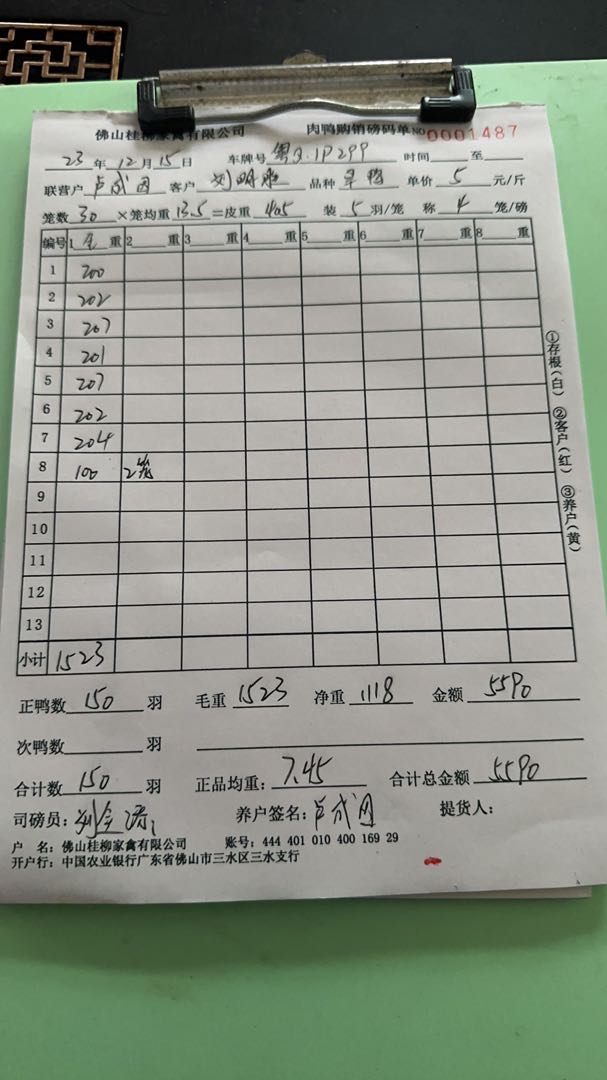 佛山桂柳家禽有限公司 肉鸭购销磅码单 NO 0001487
23 年 12 月 15 日 车牌号 粤Q.1P299 时间 至
联营户 卢成因 客户 刘明 品种 旱鸭 单价 5 元/斤
笼数 30 ×笼均重 13.5 =皮重 405 装 5 羽/笼 称 4 笼/磅
编号 1 全 重 2 重 3 重 4 重 5 重 6 重 7 重 8 重
1 200
2 202
3 207
4 201
5 207
6 202
7 204
8 100 2笼
9
10
11
12
13
小计 1523
正鸭数 150 羽 毛重 1523 净重 1118 金额 5590
次鸭数 羽
合计数 150 羽 正品均重: 7.45 合计总金额 5590
司磅员: 养户签名: 卢成因 提货人:
户 名: 佛山桂柳家禽有限公司 账号: 444 401 010 400 169 29
开户行: 中国农业银行广东省佛山市三水区三水支行
①存根(白) ②客户(红) ③养户(黄)